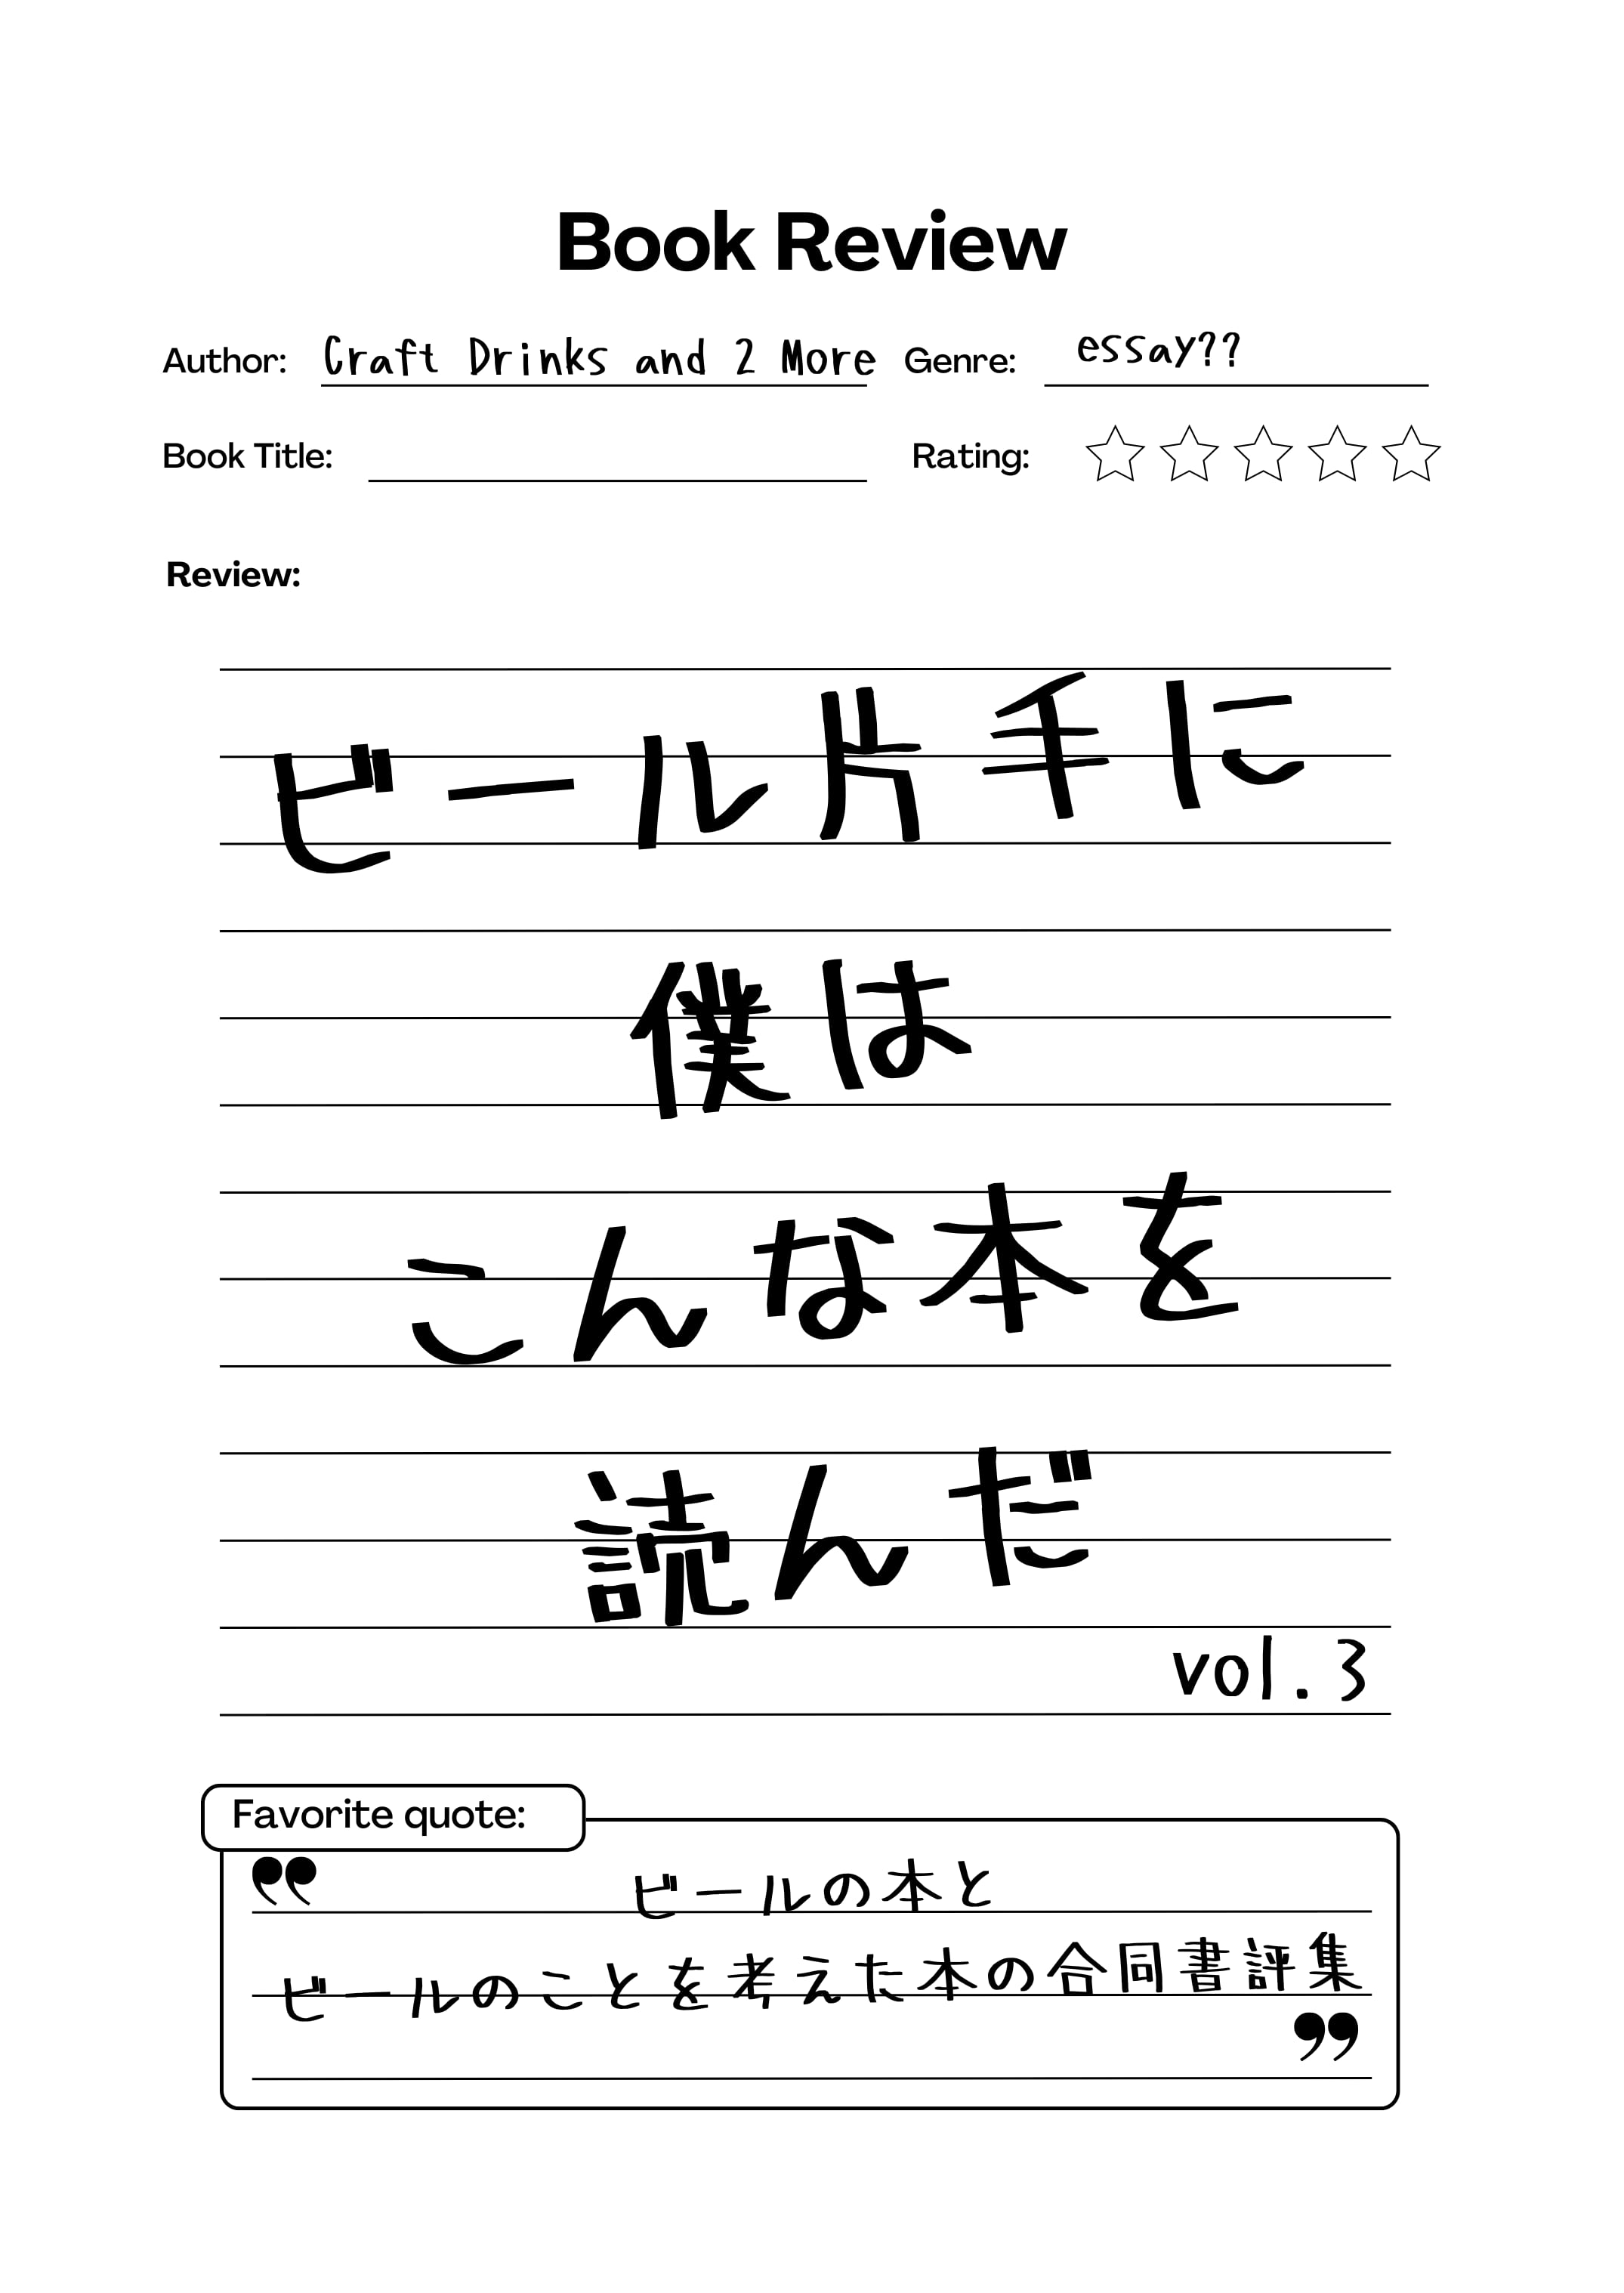 Book Review
Author: Craft Drinks and 2 More Genre: essay??
Book Title: Rating:
Review:
ビール片手に
僕は
こんな本を
読んだ
vol.3
Favorite quote:
ビールの本と
ビールのことを考えた本の合同書評集